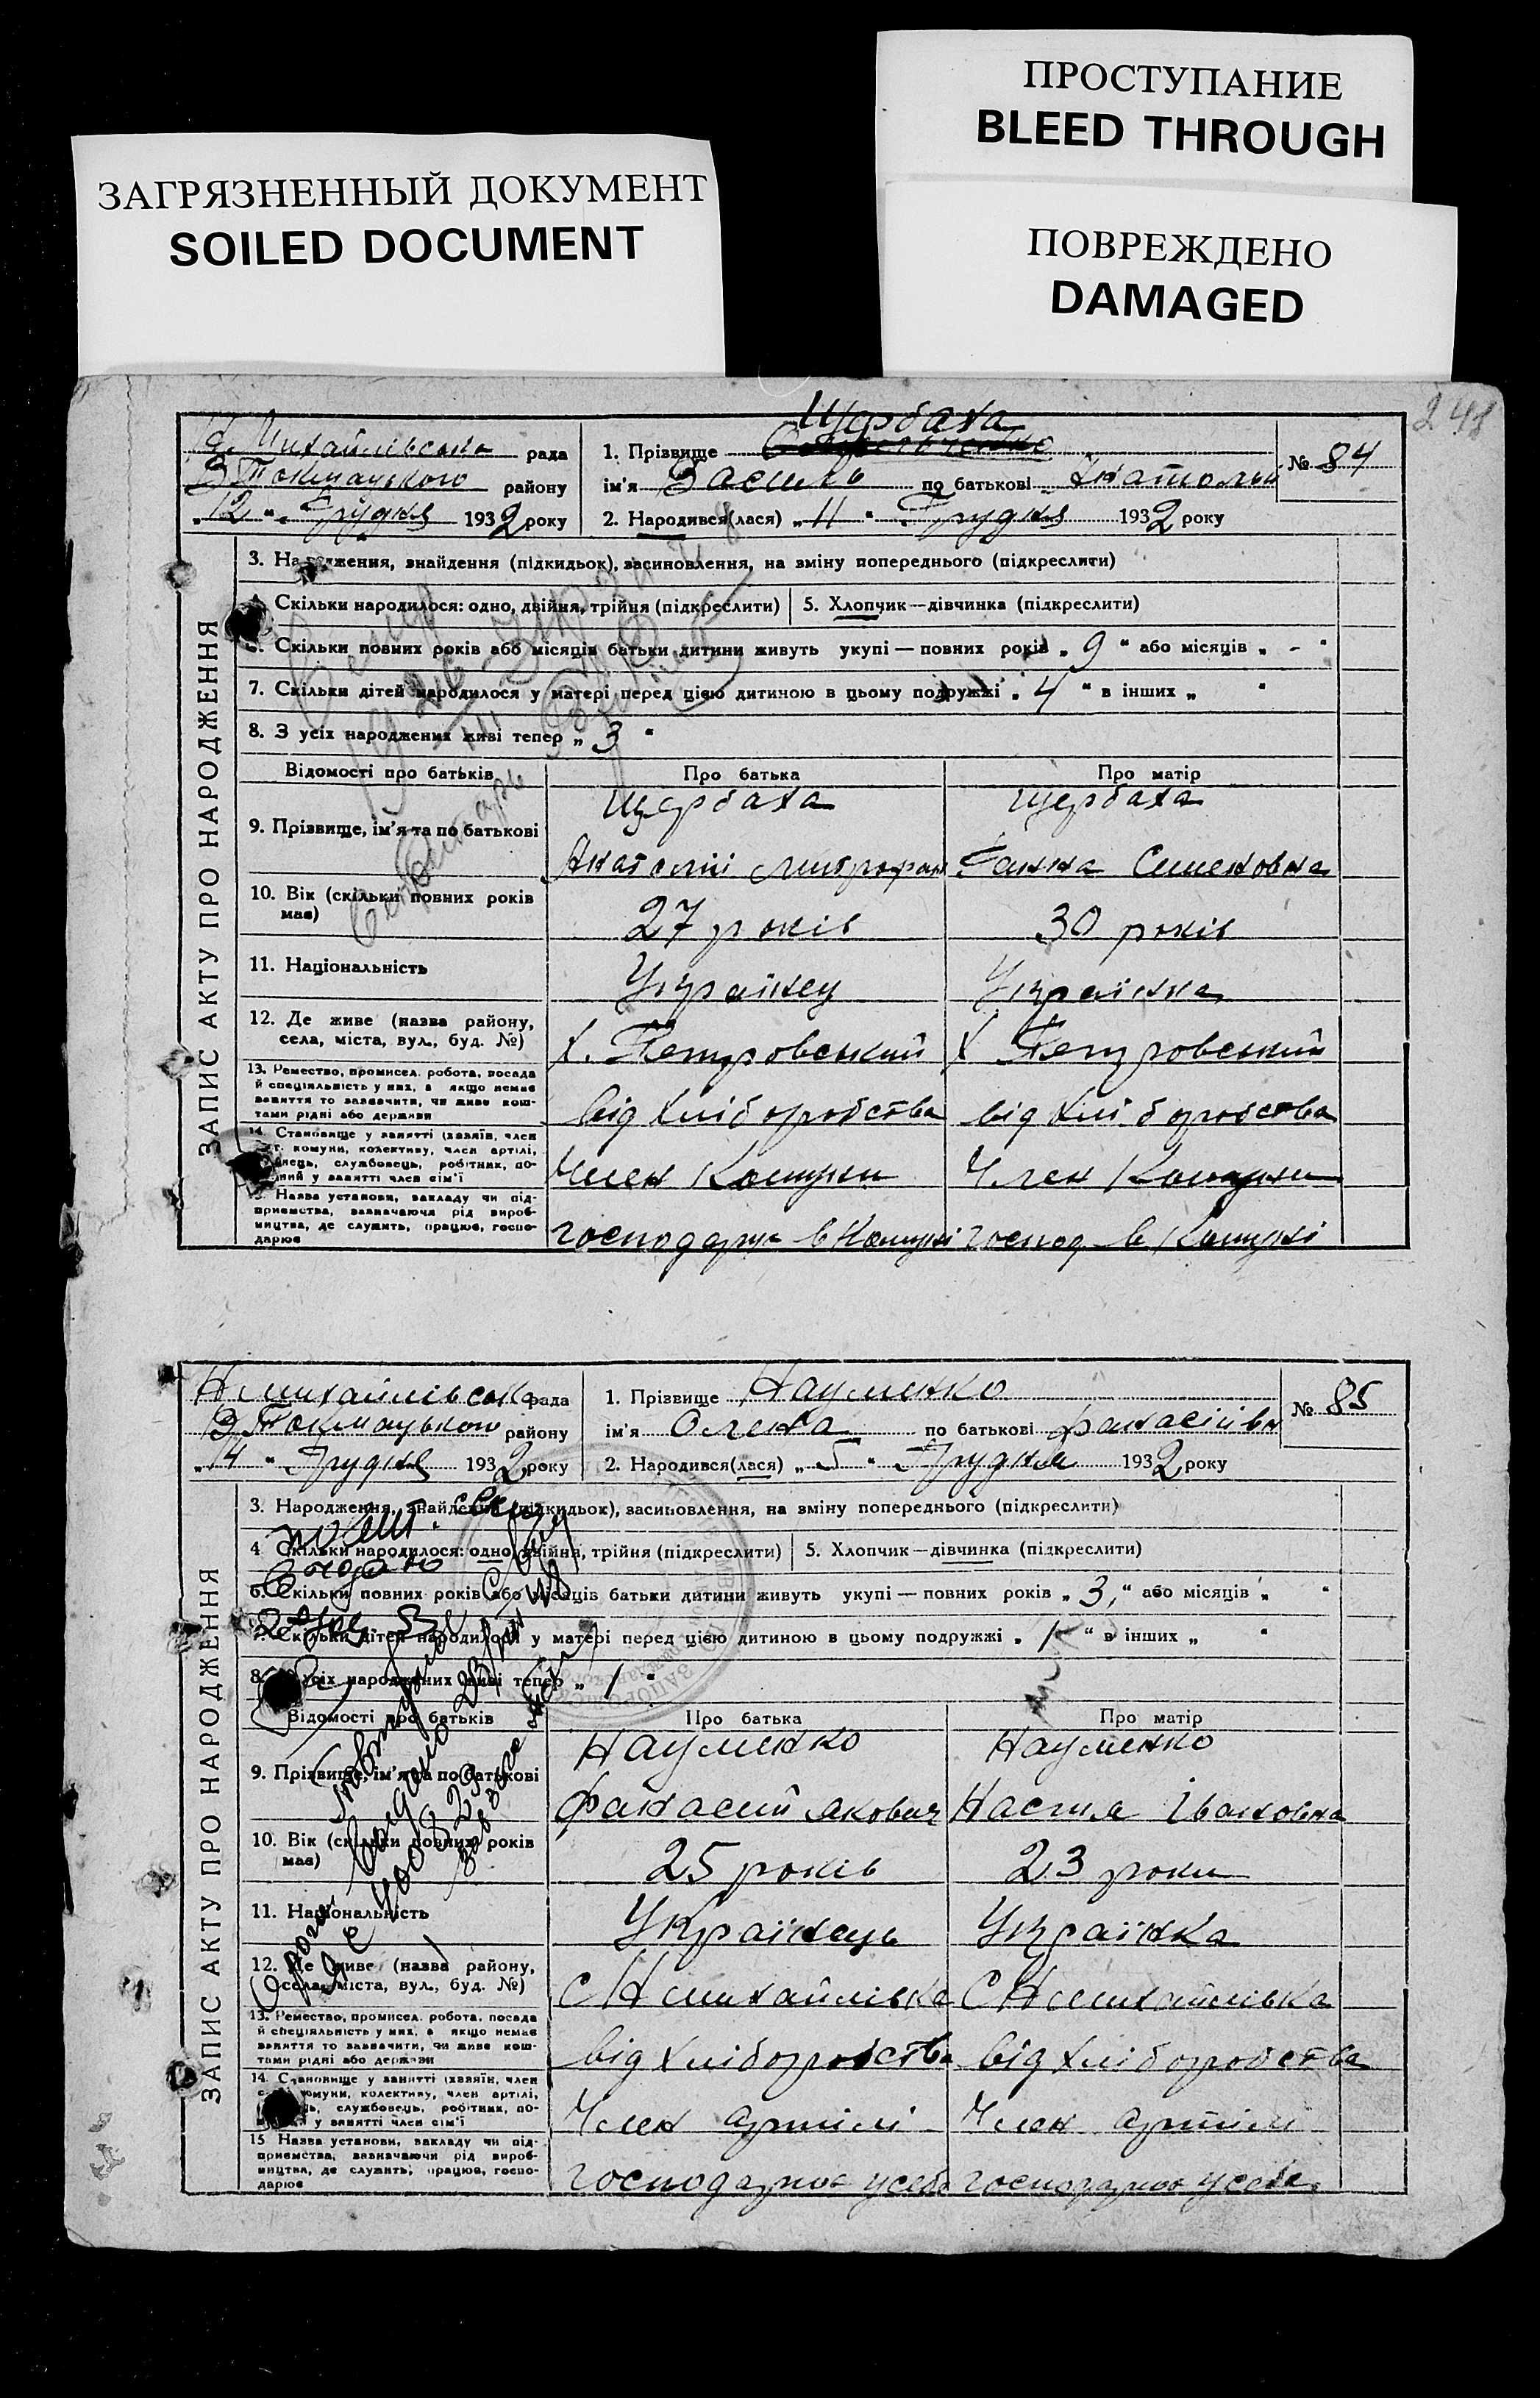 ПРОСТУПАНИЕ
BLEED THROUGH
ЗАГРЯЗНЕННЫЙ ДОКУМЕНТ
SOILED DOCUMENT
ПОВРЕЖДЕНО
DAMAGED
248
Щербаха
Михайлівська рада
1. Прізвище
№ 84
В Токмацького району
ім'я Василь по батькові Анатольй
„12" Грудня 1932 року
2. Народився(лася) „11" Грудня 1932 року
ЗАПИС АКТУ ПРО НАРОДЖЕННЯ
3. Народження, знайдення (підкидьок), засиновлення, на зміну попереднього (підкреслити)
Скільки народилося: одно, двійня, трійня (підкреслити) 5. Хлопчик—дівчинка (підкреслити)
Скільки повних років або місяців батьки дитини живуть укупі — повних років „9" або місяців „-"
7. Скільки дітей народилося у матері перед цією дитиною в цьому подружжі „4" в інших „ "
8. З усіх народжених живі тепер „3"
Відомості про батьків Про батька Про матір
Щербаха Щербаха
9. Прізвище, ім'я та по батькові
Анатолій Митрофан Ганна Семеновна
10. Вік (скільки повних років має)
27 років 30 років
11. Національність
Українец Українка
12. Де живе (назва району, села, міста, вул., буд. №)
х. Петровський х Петровський
13. Ремество, промисел, робота, посада
й спеціяльність у них, а якщо немає
заняття то зазначити, чи живе кош-
тами рідні або держави
від хліборобства від хліборобства
14. Становище у занятті (хазяїн, член
комуни, колективу, член артілі,
службовець, робітник, по-
у занятті член сім'ї
Член Комуни Член Комуни
Назва установи, закладу чи під-
приємства, зазначаючи рід вироб-
ництва, де служить, працює, госпо-
дарює
господарює в Комуні господ в Комуні
Н михайлівська рада
1. Прізвище Науменко
№ 85
В Токмацького району
ім'я Олена по батькові Фанасіївн
„14" Грудня 1932 року
2. Народився(лася) „5" Грудня 1932 року
ЗАПИС АКТУ ПРО НАРОДЖЕННЯ
3. Народження, знайдення (підкидьок), засиновлення, на зміну попереднього (підкреслити)
4 Скільки народилося: одно, двійня, трійня (підкреслити) 5. Хлопчик—дівчинка (підкреслити)
6. Скільки повних років або місяців батьки дитини живуть укупі — повних років „3," або місяців „ "
7. Скільки дітей народилося у матері перед цією дитиною в цьому подружжі „1" в інших „ "
8. З усіх народжених живі тепер „1"
Відомості про батьків Про батька Про матір
Науменко Науменко
9. Прізвище, ім'я та по батькові
Фанасий Якович Настия Івановна
10. Вік (скільки повних років має)
25 років 23 роки
11. Національність
Українець Українка
12. Де живе (назва району, села, міста, вул., буд. №)
С Н михайлівка С Н михайлівка
13. Ремество, промисел, робота, посада
й спеціяльність у них, а якщо немає
заняття то зазначити, чи живе кош-
тами рідні або держави
від хліборобства від хліборобства
14. Становище у занятті (хазяїн, член
комуни, колективу, член артілі,
службовець, робітник, по-
у занятті член сім'ї
Член артілі Член артілі
15 Назва установи, закладу чи під-
приємства, зазначаючи рід вироб-
ництва, де служить, працює, госпо-
дарює
господарює у себе господарює у себе